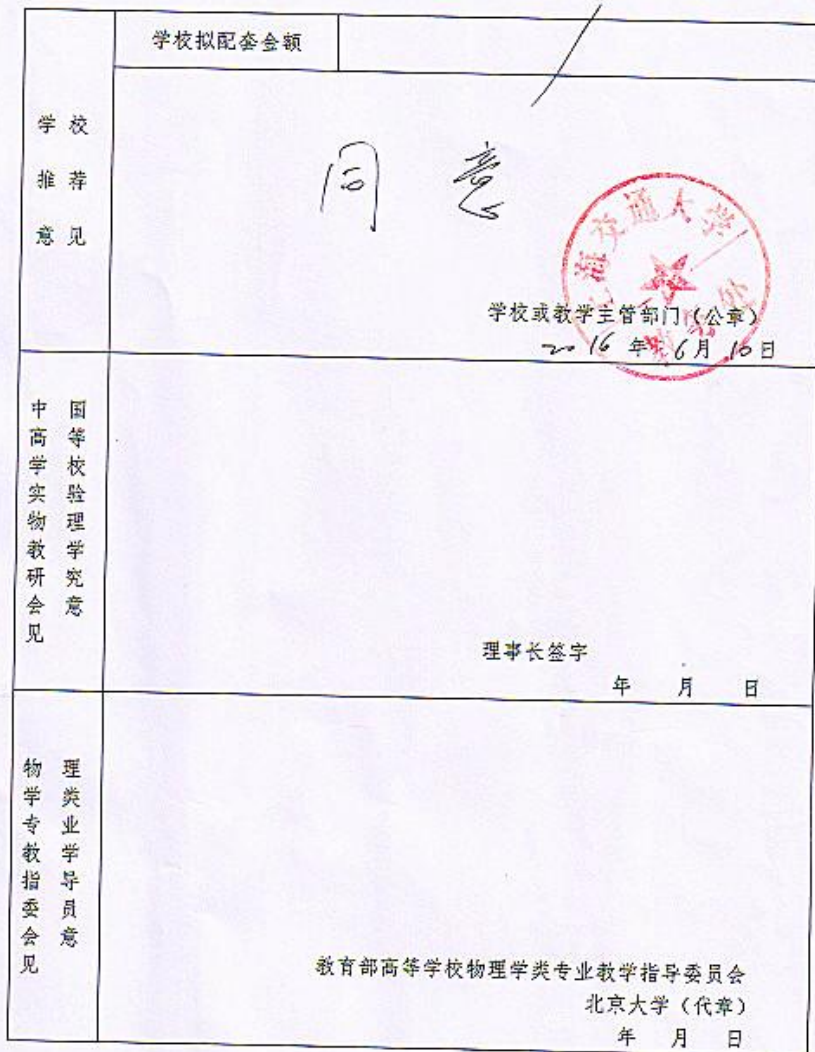 学校拟配套金额
学校
推荐
意见
同意
上海交通大学
学校或教学主管部门（公章）
2016年6月10日
中国
高等
学校
实验
物理
教学
研究
会意
见
理事长签字
年 月 日
物理
学类
专业
教学
指导
委员
会意
见
教育部高等学校物理学类专业教学指导委员会
北京大学（代章）
年 月 日